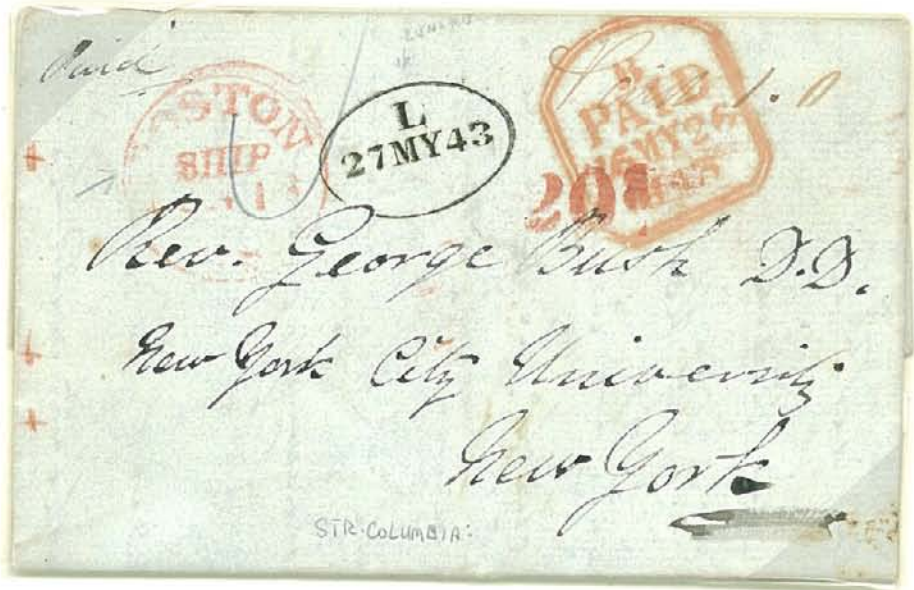 Paid
BOSTON
SHIP
L
27MY43
B
PAID
26MY26
1843
Paid 1.0
20
Rev. George Bush D.D.
New York City University
New York
STR. COLUMBIA: